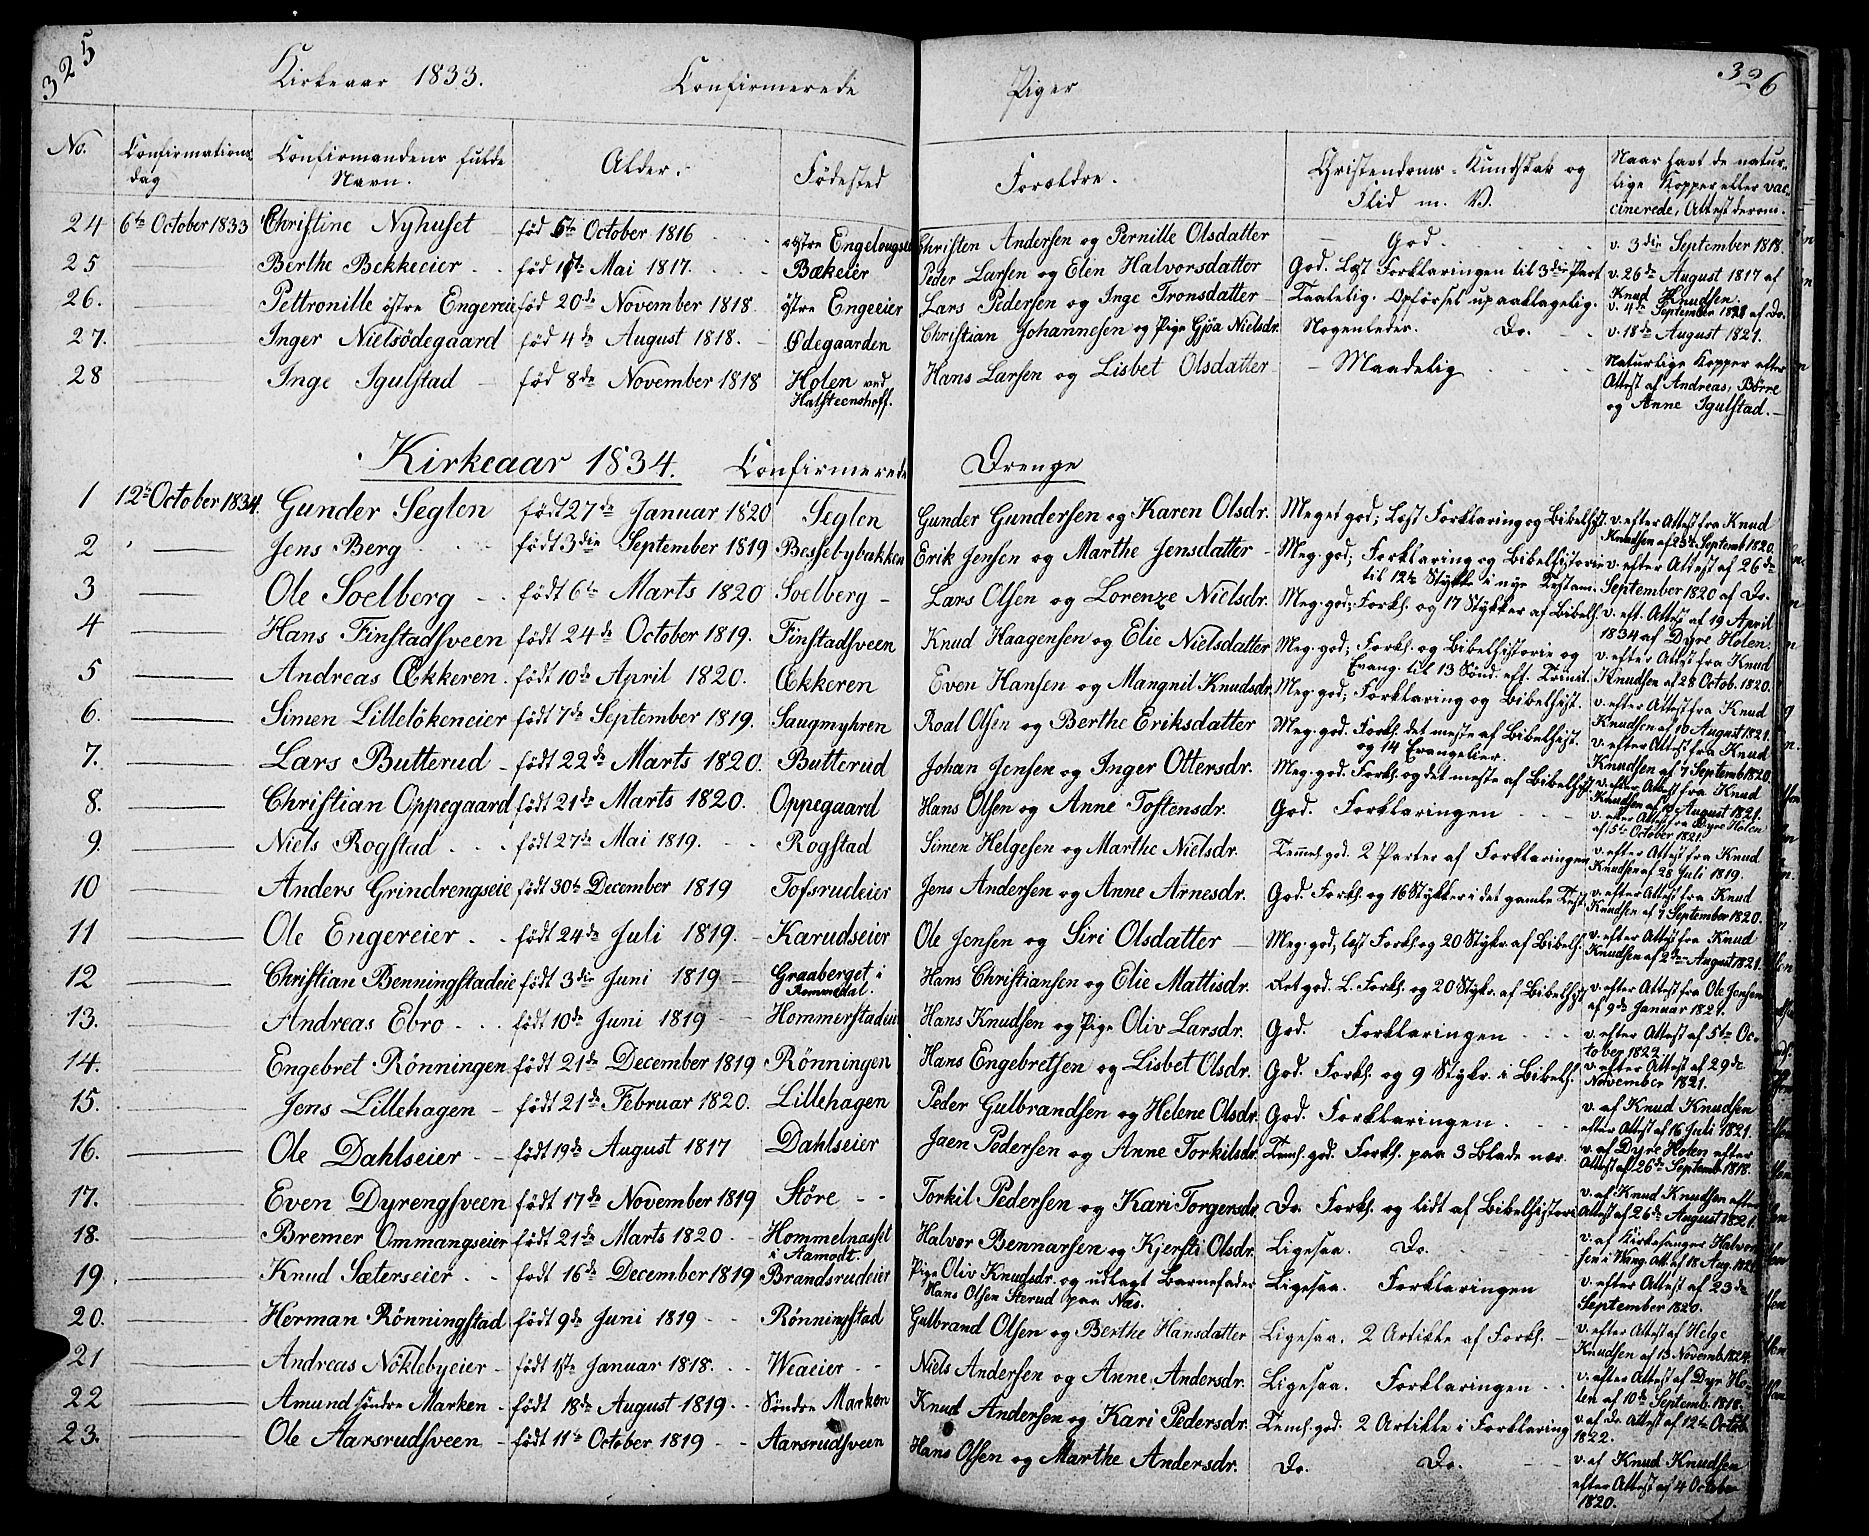 325
326
Kirkeaar 1833. Confirmerede Piger
No. Confirmations dag Confirmandens fulde Navn. Alder. Fødested Forældre. Christendoms-Kundskab og Flid m. V. Naar havt de naturlige Kopper eller vaccinerede, Attest derom.
24 6te October 1833 Christine Nyhuset fød 6te October 1816 østre Engelougseie Christen Andersen og Pernille Olsdatter God. v. 3die September 1818.
25 Berthe Bekkeeier fød 1ste Mai 1817. Bækeier Peder Larsen og Elen Halvorsdatter God. Læst Forklaringen til 3die Part v. 26de August 1817 af Knud Knudsen.
26. Pettronille östre Engereie fød 20de November 1818 östre Engeeier Lars Pedersen og Inge Tronsdatter Taalelig. Opførsel upaaklagelig. v. 4de September 1828 af Do.
27. Inger Nielsödegaard fød 4de August 1818. Ödegaarden Christian Johannesen og Pige Gjøa Nielsdr. Nogenledes. Do. v. 18de August 1821.
28 Inge Igulstad fød 8de November 1818 Holen ved Halsteenshoff. Hans Larsen og Lisbet Olsdatter Maadelig Naturlige Kopper efter Attest af Andreas, Börre og Anne Igulstad.
Kirkeaar 1834. Confirmerede Drenge
1 12te October 1834. Gunder Seglen født 27de Januar 1820 Seglen Gunder Gundersen og Karen Olsdr. Meget god; Læst Forklaring og Bibelhist. v. efter Attest fra Knud Knudsen af 23de Septemb 1820.
2 Jens Berg født 3die September 1819 Bessebybakken Erik Jensen og Marthe Jensdatter Meg. god; Forklaring og Bibelhistorie til 12te Stykke i nye Testam. v. efter Attest af 26de September 1820 af Do.
3 Ole Soelberg født 6te Marts 1820 Soelberg Lars Olsen og Lorenze Nielsdr. Meg. god; Forkl. og 17 Stykker af Bibelh. v. eft. Attest af 19 April 1834 af Dyre Holen.
4 Hans Finstadsveen født 24de October 1819. Finstadsveen Knud Haagensen og Elie Nielsdatter Meg. god; Forkl. og Bibelhistorie og Evang. til 13 Sönd. eft. Trinit. v. efter Attest fra Knud Knudsen af 28 Octob. 1820.
5 Andreas Ækkeren født 10de April 1820. Ækkeren Even Hansen og Mangnil Knudsdr. Meg. god; Forklaring og Bibelhist. v. efter Attest fra Knud Knudsen af 16 August 1821.
6. Simen Lillelökeneier født 7de September 1819. Saugmyhren Roal Olsen og Berthe Eriksdatter Meg. god. Forkl. det meste af Bibelhist. og 14 Evangelier. v. efter Attest fra Knud Knudsen af 7 Septemb 1820.
7. Lars Butterud født 22de Marts 1820. Butterud Johan Jensen og Inger Ottersdr. Meg. god. Forkl. og det meste af Bibelhist. v. efter Attest fra Knud Knudsen af 10 August 1821.
8. Christian Oppegaard født 21de Marts 1820. Oppegaard Hans Olsen og Anne Tostensdr. God. Forklaringen v. efter Attest fra Dyre Holen af 5te October 1821.
9. Niels Rogstad født 27de Mai 1819. Rogstad Simen Helgesen og Marthe Nielsdr. Temel. god. 2 Parter af Forklaringen v. efter Attest fra Knud Knudsen af 28 Juli 1819.
10 Anders Grindrengseie født 30te December 1819 Tofsrudeier Jens Andersen og Anne Arnesdr. God. Forkl. og 16 Stykker i det gamle Test. v. efter Attest fra Knud Knudsen af 7 September 1820.
11 Ole Engereier født 24de Juli 1819. Karudseier Ole Jensen og Siri Olsdatter Meg. god, læst Forkl. og 20 Stykr. af Bibelh. v. efter Attest fra Knud Knudsen af 2den August 1821.
12 Christian Benningstadeie født 3die Juni 1819 Graaberget i Rommedal. Hans Christiansen og Elie Mattisdr. Ret god. L. Forkl. og 20 Stykr. af Bibelhist. v. efter Attest fra Ole Jensen af 9de Januar 1821.
13. Andreas Ebro født 10de Juni 1819 Hommerstadeie Hans Knudsen og Pige Oliv Larsdr. God. Forklaringen v. efter Attest af 5te October 1822.
14. Engebret Rönningen født 21de December 1819 Rönningen Hans Engebretsen og Lisbet Olsdr. God. Forkl. og 9 Stykr. i Bibelh. v. efter Attest af 29de November 1821.
15. Jens Lillehagen født 21de Februar 1820. Lillehagen Peder Gulbrandsen og Helene Olsdr. God. Forklaringen. v. af Knud Knudsen efter Attest af 16 Juli 1821.
16. Ole Dahlseier født 19de August 1817 Dahlseier Jaen Pedersen og Anne Torkilsdr. Temel. god. Forkl. paa 3 Blade nær. v. af Dyre Holen efter Attest af 26de Septemb 1818.
17. Even Dyrengsveen født 17de November 1819 Störe Torkil Pedersen og Kari Torgersdr. Do. Forkl. og lidt af Bibelhistorie v. af Knud Knudsen efter Attest af 26de August 1821.
18. Bremer Ommangseier født 21de Marts 1820 Hommelnasset i Aamodt. Halvor Bennarsen og Kjersti Olsdr. Ligesaa. Do. v. af Kirkesanger Halvorsen i Vang, Att. af 18 Aug. 1821
19. Knud Sæterseier født 16de December 1819 Brandsrudeier Pige Oliv Knudsdr. og udlagt Barnefader Hans Olsen Sterud paa Næs. Ligesaa. Forklaringen v. efter Attest af 23de September 1820.
20. Herman Rönningstad födt 9de Juni 1819 Rönningstad Gulbrand Olsen og Berthe Hansdatter Ligesaa. 2 Artikle af Forkl. v. efter Attest af Helge Knudsen af 13 Novemb. 1824.
21 Andreas Nöklebyeier født 1ste Januar 1818. Weaeier Niels Andersen og Anne Andersdr. Ligesaa. Forklaringen v. efter Attest af Dyr Holen af 10de Septemb. 1818.
22 Amund söndre Marken født 18de August 1819 Söndre Marken Knud Andersen og Kari Pedersdr. Temel. god. 2 Artikle i Forklaring v. af Do. Attest af 12te Octob 1822.
23. Ole Aarsrudsveen født 11te October 1819 Aarsrudsveen Hans Olsen og Marthe Andersdr. Do. Do. v. af Knud Knudsen efter Attest af 4 October 1820.